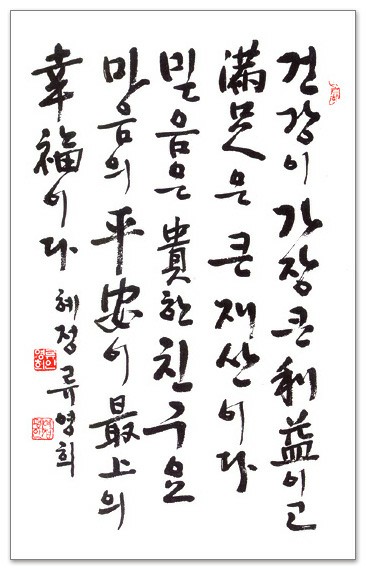 건강이 가장 큰 利益이고
滿足은 큰 재산이다
믿음은 貴한 친구요
마음의 平安이 最上의
幸福이다 혜정 류영희